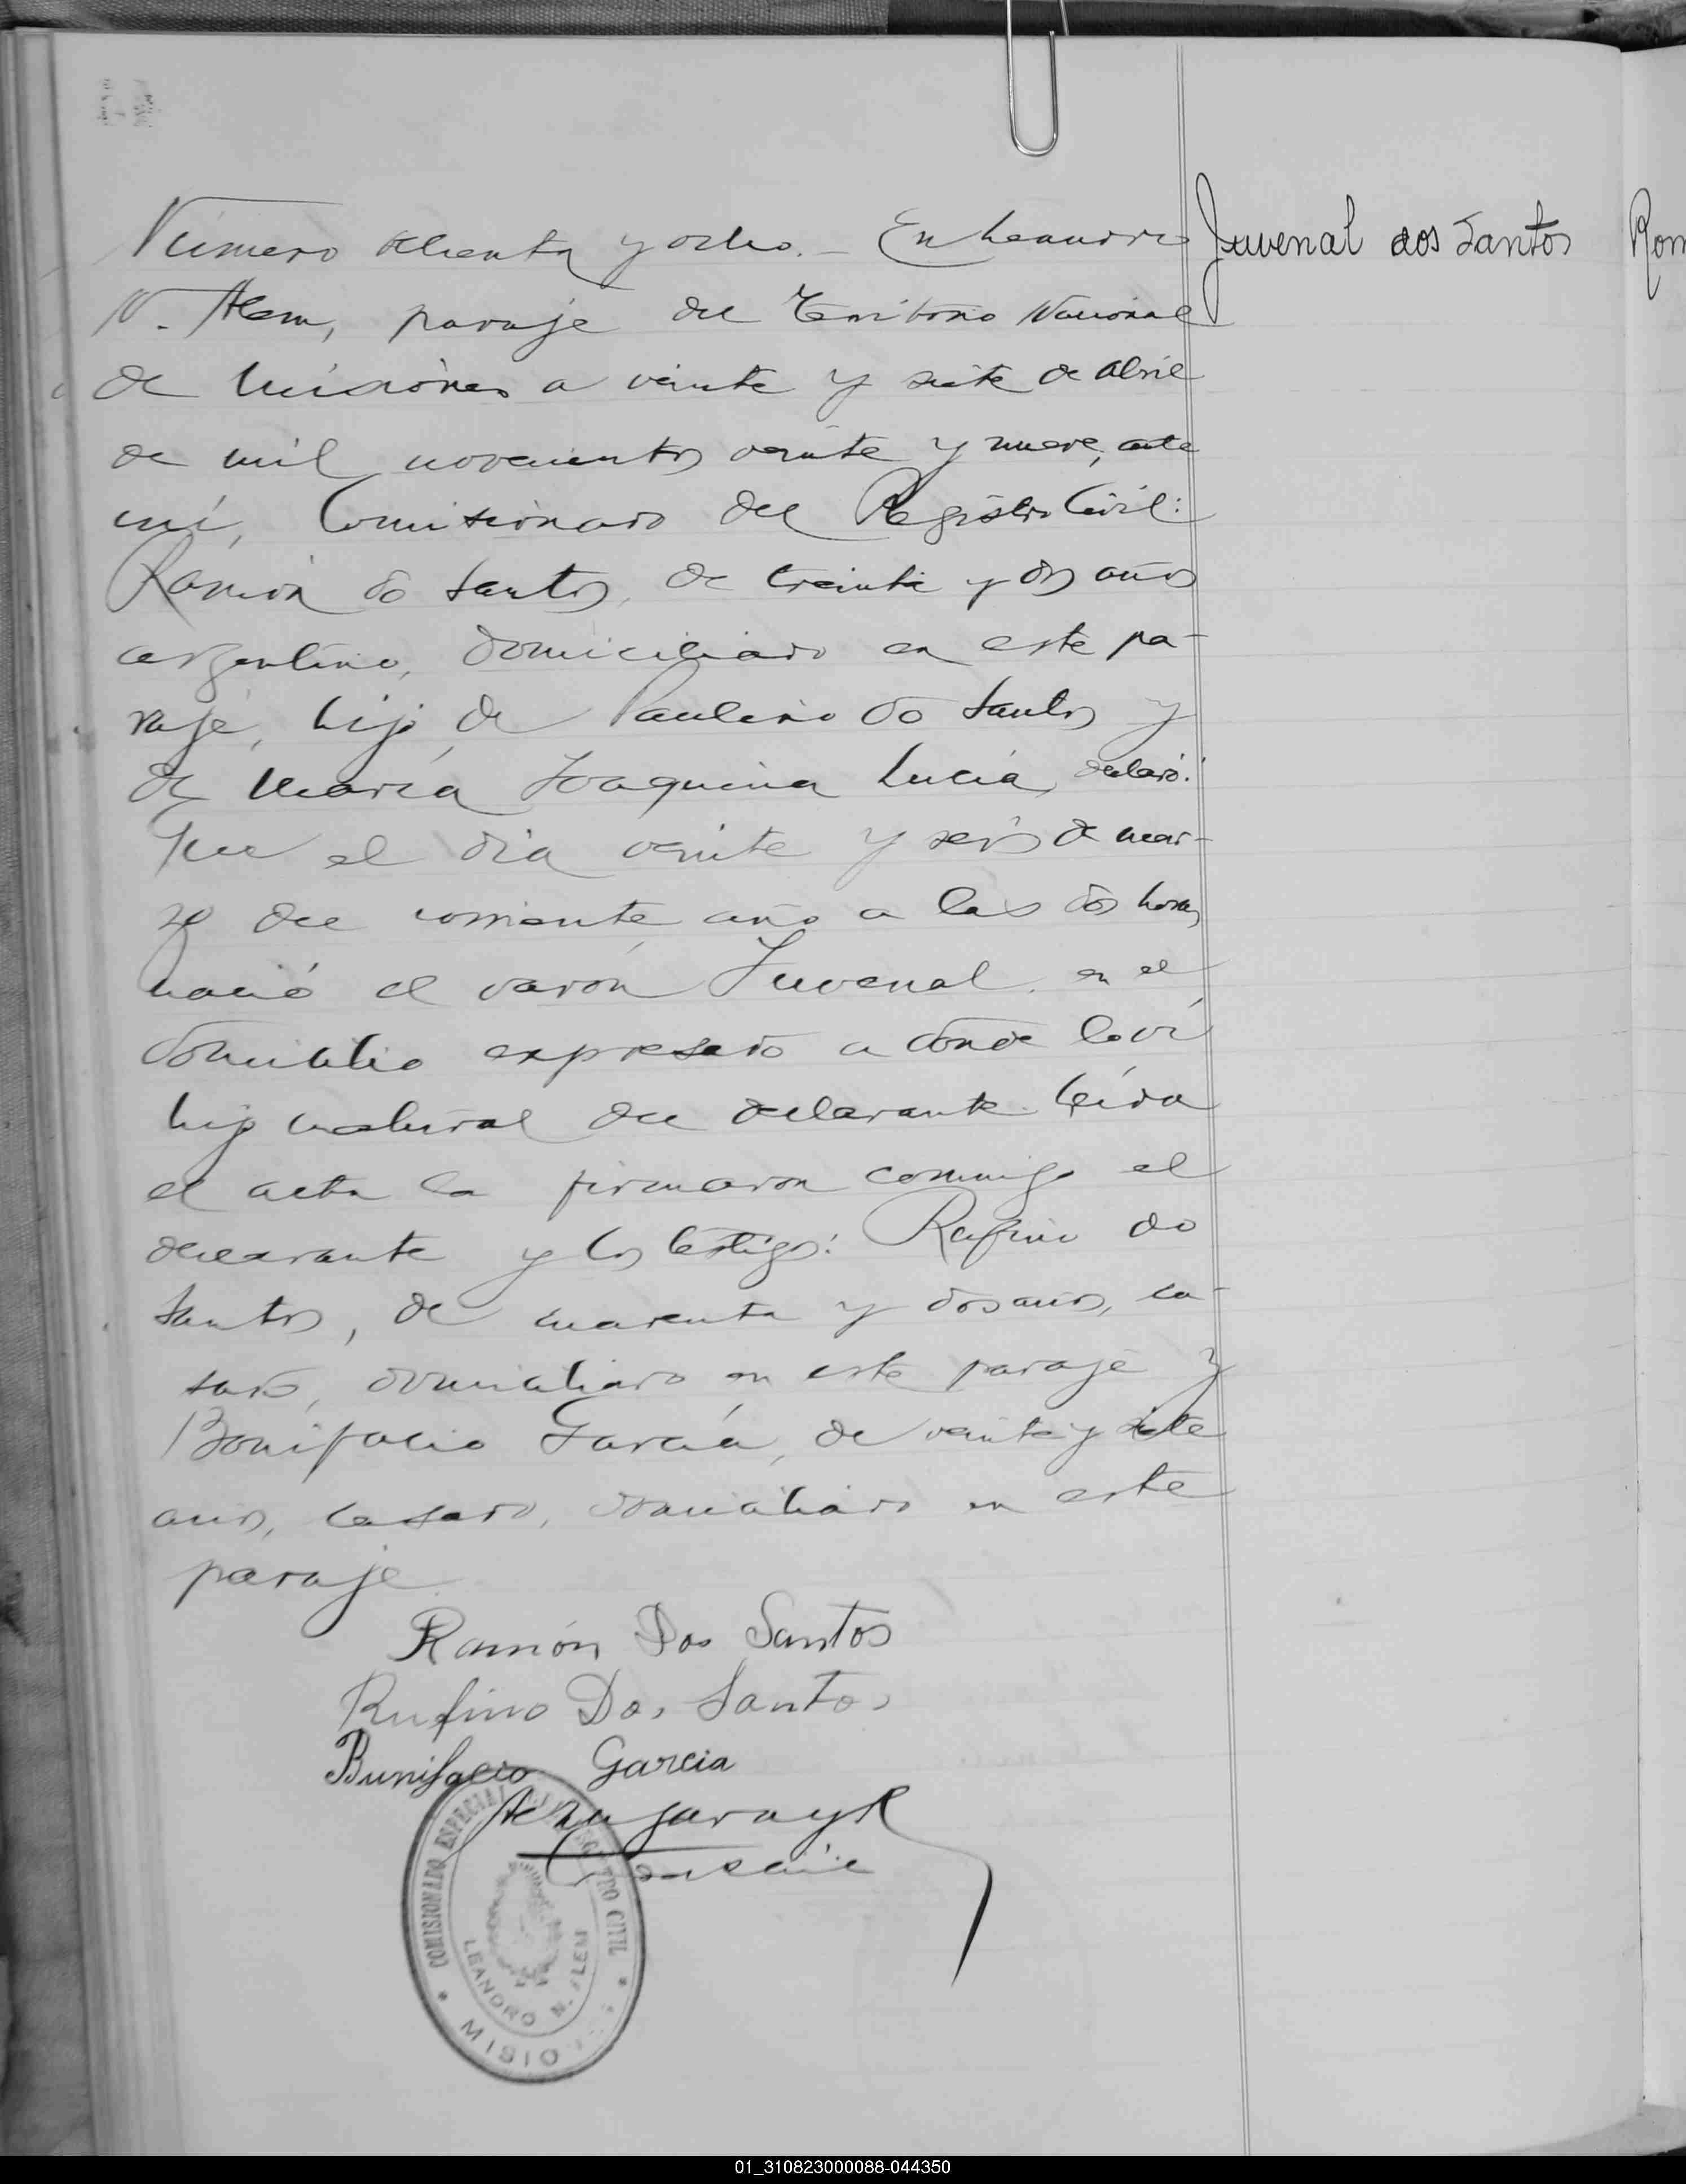 Número ochenta y ocho. – En Leandro
Juvenal dos Santos
Rom
N. Alem, paraje del Territorio Nacional
de Misiones a veinte y siete de abril
de mil novecientos veinte y nueve, ante
mí, Comisionado del Registro Civil:
Ramón do Santos, de treinta y dos años
argentino, domiciliado en este pa-
raje, hijo de Paulino do Santos y
de María Joaquina Lucía, declaró:
Que el día veinte y seis de mar-
zo del corriente año a las dos horas
nació el varón Juvenal en el
domicilio expresado a donde lo vi
hijo natural del declarante. Leída
el acta la firmaron conmigo el
declarante y los testigos: Rufino do
Santos, de cuarenta y dos años, ca-
sado, domiciliado en este paraje y
Bonifacio García, de veinte y siete
años, casado, domiciliado en este
paraje
Ramón Dos Santos
Rufino Dos Santos
Bunifacio Garcia
COMISIONADO ESPECIAL REGISTRO CIVIL
LEANDRO N. ALEM
MISIO
01_310823000088-044350